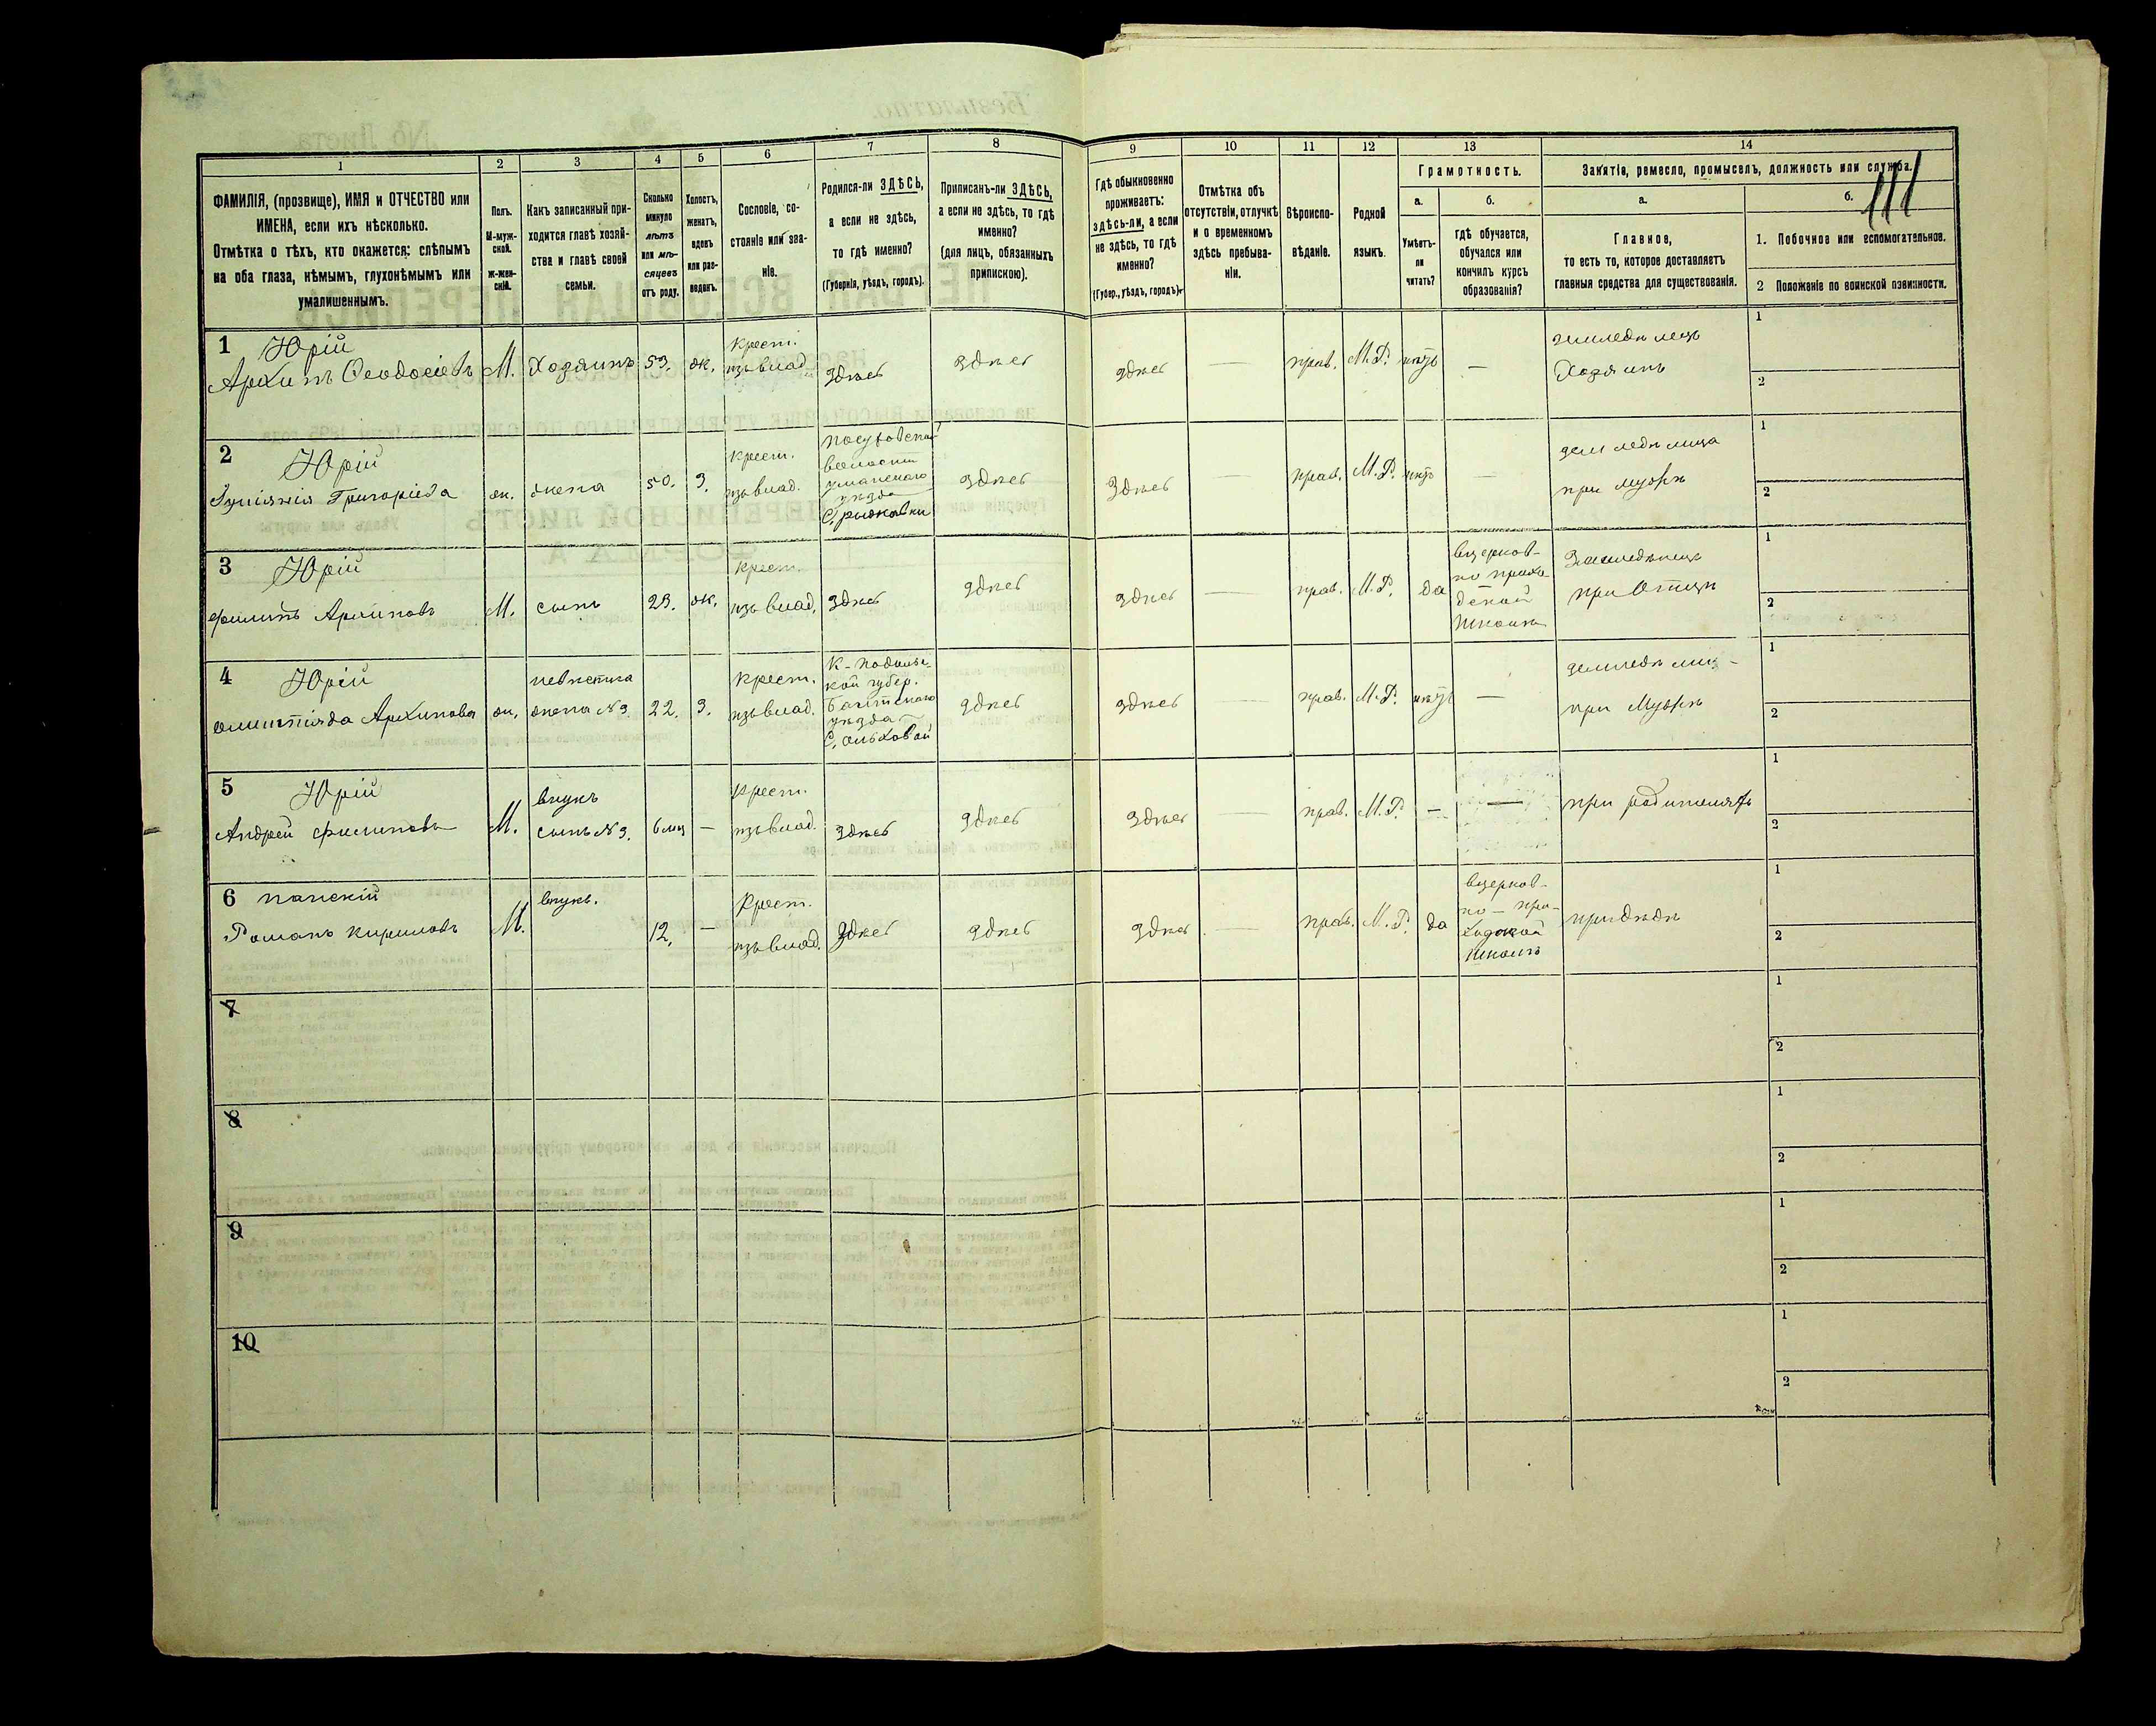 1
2
3
4
5
6
7
8
9
10
11
12
13
14
ФАМИЛІЯ, (прозвище), ИМЯ и ОТЧЕСТВО или
ИМЕНА, если ихъ нѣсколько.
Отмѣтка о тѣхъ, кто окажется: слѣпымъ
на оба глаза, нѣмымъ, глухонѣмымъ или
умалишеннымъ.
Полъ.
М-муж-
ской.
ж-жен-
скій.
Какъ записанный при-
ходится главѣ хозяй-
ства и главѣ своей
семьи.
Сколько
минуло
лѣтъ
или мѣ-
сяцевъ
отъ роду.
Холостъ,
женатъ,
вдовъ
или раз-
веденъ.
Сословіе, со-
стояніе или зва-
ніе.
Родился-ли ЗДѢСЬ,
а если не здѣсь,
то гдѣ именно?
(Губернія, уѣздъ, городъ).
Приписанъ-ли ЗДѢСЬ,
а если не здѣсь, то гдѣ
именно?
(для лицъ, обязанныхъ
припискою).
Гдѣ обыкновенно
проживаетъ:
здѣсь-ли, а если
не здѣсь, то гдѣ
именно?
(Губер., уѣздъ, городъ).
Отмѣтка объ
отсутствіи, отлучкѣ
и о временномъ
здѣсь пребыва-
ніи.
Вѣроиспо-
вѣданіе.
Родной
языкъ.
Грамотность.
а.
Умѣетъ-
ли
читать?
б.
гдѣ обучается,
обучался или
кончилъ курсъ
образованія?
Занятіе, ремесло, промыселъ, должность или служба.
а.
Главное,
то есть то, которое доставляетъ
главныя средства для существованія.
б.
1. Побочное или вспомогательное.
2 Положеніе по воинской повинности.
1 Юрій
Архипъ Ѳеодосіевъ
М.
Хозяинъ
53.
ж.
крест.
изъ влад.
Здѣсь
здѣсь
здѣсь
—
прав.
М.Р.
нѣтъ
—
земледѣлецъ
Хозяинъ
1
2
2 Юрій
Григоріева
ж.
жена
50.
З.
крест.
изъ влад.
волости
уманскаго
уѣзда
С. рыжавки
здѣсь
Здѣсь
—
прав.
М.Р.
нѣтъ
—
при мужѣ
1
2
3 Юрій
филипъ Архиповъ
М.
сынъ
23.
ж.
крест.
изъ влад.
Здѣсь
здѣсь
здѣсь
—
прав.
М.Р.
да
вцерков-
но прихо-
дской
школѣ
Земледѣлецъ
при Отцѣ
1
2
4 Юрій
Архипова
ж.
невѣстка
жена №3
22.
З.
крест.
изъ влад.
К-подоль-
кой губер.
Балтскаго
уѣзда
С. ольховой
здѣсь
здѣсь
прав.
М.Р.
нѣтъ
—
при Мужѣ
1
2
5 Юрій
Андрей филиповъ
М.
внукъ
сынъ №3.
6 мц
—
крест.
изъ влад.
здѣсь
здѣсь
здѣсь
—
прав.
М.Р.
—
—
при родителяхъ
1
2
6 панскій
Романъ кириловъ
М.
внукъ.
12.
—
Крест.
изъ влад.
Здѣсь
здѣсь
здѣсь
—
прав.
М.Р.
да
вцерков-
но-при-
ходской
школѣ
при дѣдѣ
1
2
7
1
2
8
1
2
9
1
2
10
1
2